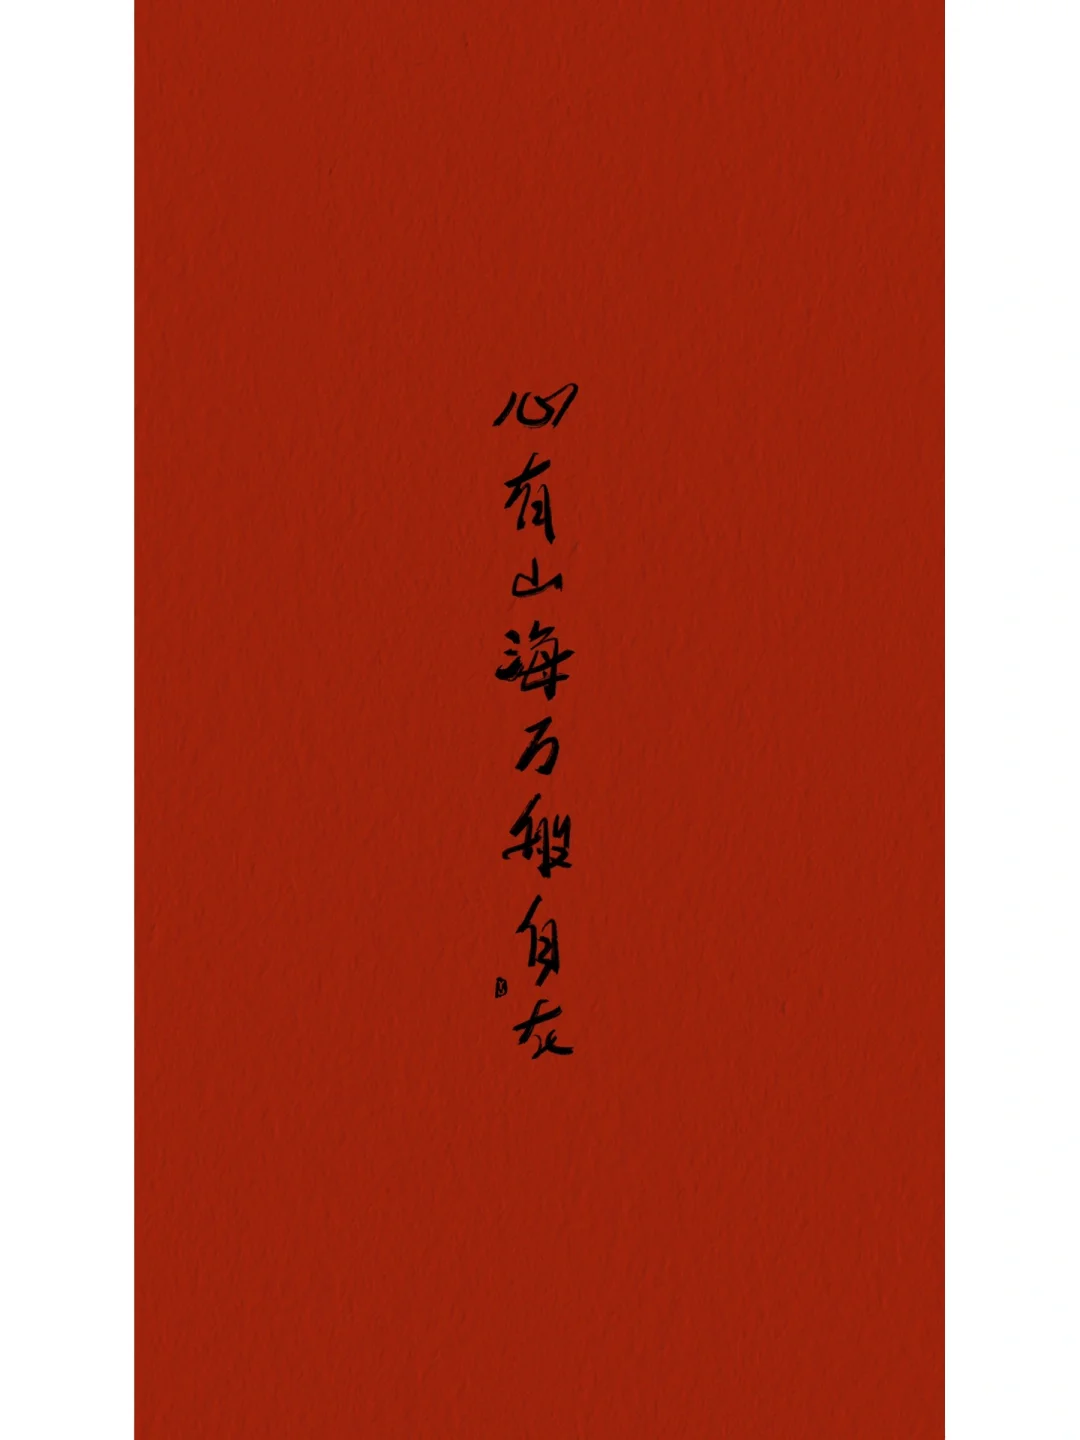 心有山海万般自在